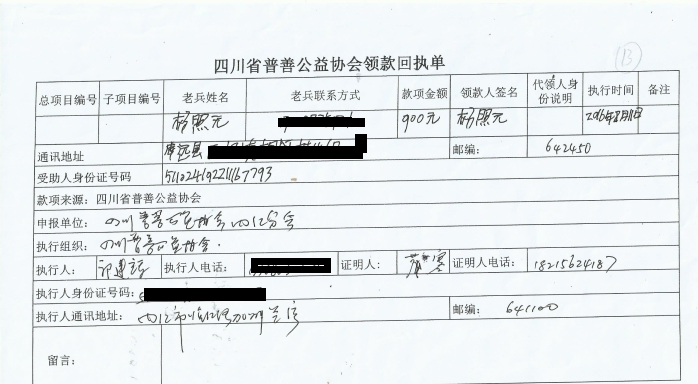 13
四川省普善公益协会领款回执单
总项目编号 子项目编号 老兵姓名 老兵联系方式 款项金额 领款人签名 代领人身份说明 执行时间 备注
杨照元 900元 杨照元
通讯地址 邮编: 642450
受助人身份证号码
款项来源: 四川省普善公益协会
申报单位: 四川普善公益协会内江分会
执行组织: 四川普善公益协会.
执行人: 执行人电话: 证明人: 证明人电话: 18215624187
执行人身份证号码:
执行人通讯地址: 内江市 邮编: 641100
留言: